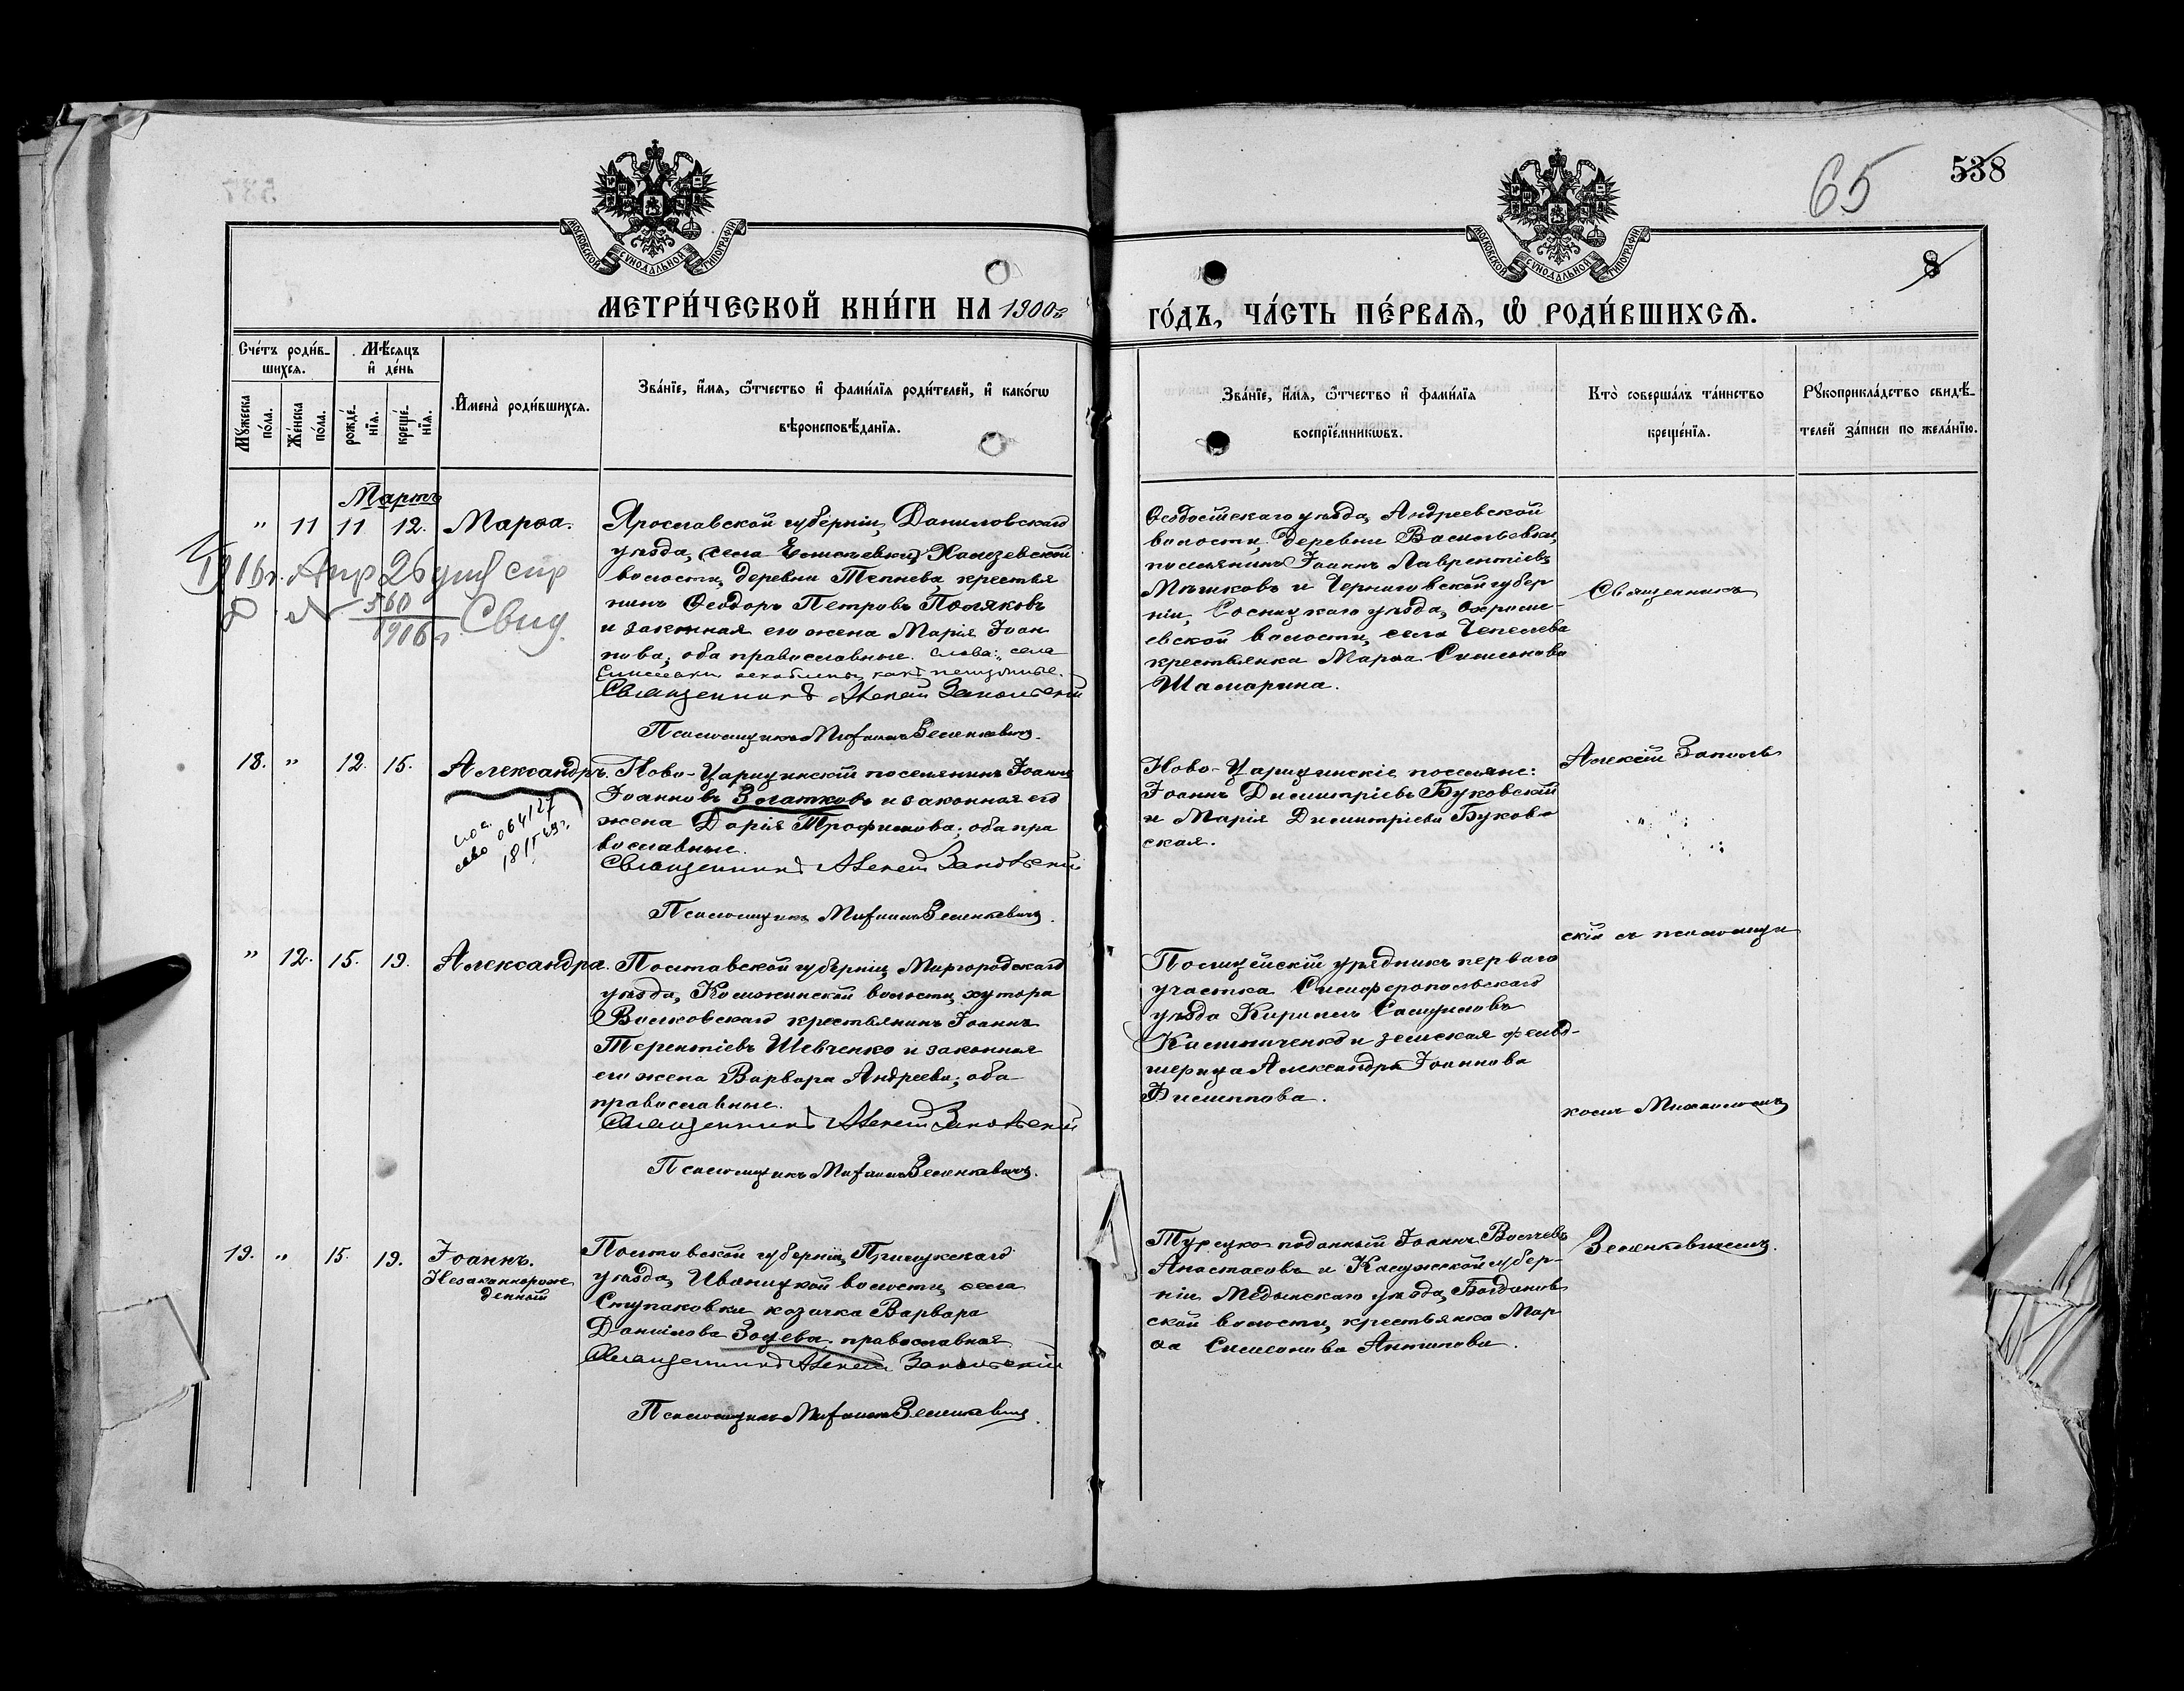 538
65
8
МОСКОВСКОЙ СѴНОДАЛЬНОЙ ТИПОГРАФІИ
МОСКОВСКОЙ СѴНОДАЛЬНОЙ ТИПОГРАФІИ
МЕТРИ́ЧЕСКОЙ КНИ́ГИ НА 1900 г
ГО́ДЪ, ЧА́СТЬ ПЕ́РВАѦ, Ѽ РОДИ́ВШИХСѦ.
Сче́тъ роди́в-
шихсѧ.
Мꙋ́жеска по́ла.
Же́нска по́ла.
Мѣ́сѧцъ
и҆ де́нь
рожде́-
нїѧ.
креще́-
нїѧ.
И҆мена̀ роди́вшихсѧ.
Зва́нїе, и҆́мѧ, ѻ҆́тчество и҆ фами́лїѧ роди́телей, и҆ како́гѡ
вѣроисповѣ́данїѧ.
Зва́нїе, и҆́мѧ, ѻ҆́тчество и҆ фами́лїѧ
воспрїе́мникѡвъ.
Кто̀ соверша́лъ та́инство
креще́нїѧ.
Рꙋкоприкла́дство свидѣ́-
телей за́писи по жела́нїю.
Мартъ
" 11 11 12. Марѳа.
Ярославской губерніи, Даниловскаго
уѣзда, (села Халзевской
волости, деревни Тепнева, крестья
нинъ Ѳеодоръ Петровъ Поляковъ
и законная его жена Марія Іоан
нова; оба православные. Слова: „села
какъ
Священникъ Алексій Запольскій
Псаломщикъ Михаилъ Зеленкевичъ.
1916 г. Апр 26
№ 560
1916 г. Свид.
Ѳеодосійскаго уѣзда, Андреевской
волости, деревни Васильевки,
поселянинъ Іоаннъ Лаврентіевъ
Мѣшковъ и Черниговской губер
ніи, Сосницкаго уѣзда, Охроме-
евской волости, села Чепелева
крестьянка Марѳа Симеонова
Шамарина.
Священникъ
18. " 12. 15. Александръ.
064127
18 II 49 г.
Ново-Царицинскій поселянинъ Іоаннъ
Іоанновъ Златковъ и законная его
жена Дарія Трофимова; оба пра
вославные.
Священникъ Алексій Запольскій
Псаломщикъ Михаилъ Зеленкевичъ.
Ново-Царицинскіе поселяне:
Іоаннъ Димитріевъ Буковскій
и Марія Димитріева Буков-
ская.
Алексій Заполь
" 12. 15. 19. Александра.
Полтавской губерніи, Миргородскаго
уѣзда, волости, хутора
Волковскаго крестьянинъ Іоаннъ
Терентіевъ Шевченко и законная
его жена Варвара Андреева; оба
православные.
Священникъ Алексій Запольскій
Псаломщикъ Михаилъ Зеленкевичъ.
Полицейскій урядникъ перваго
участка Симферопольскаго
уѣзда Кириллъ
и земская фельд-
шерица Александра Іоаннова
Филиппова.
скій съ псаломщи
комъ Михаиломъ
19. " 15. 19. Іоаннъ.
Незаконнорож
денный
Полтавской губерніи, Прилукскаго
уѣзда, Иваницкой волости, села
Ступаковки козачка Варвара
Даніилова Зоцева, православная
Священникъ Алексій Запольскій
Псаломщикъ Михаилъ Зеленкевичъ.
Турецко-поданный Іоаннъ Волчевъ
Анастасовъ и Калужской губер-
ніи Медынскаго уѣзда, Богданов
ской волости, крестьянка Мар
ѳа Симеонова Антипова.
Зеленкевичемъ.